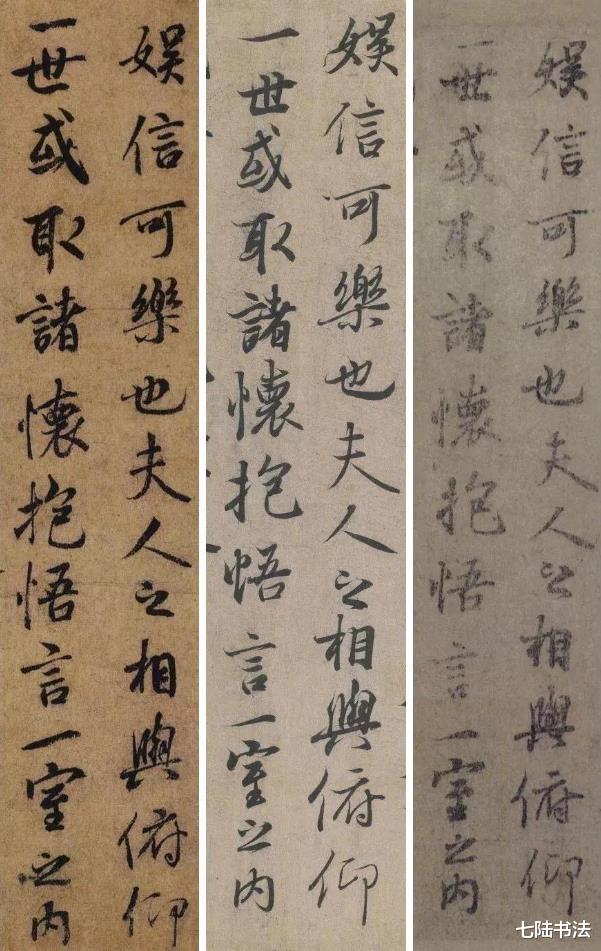 娛信可樂也夫人之相與俯仰
一世或取諸懷抱悟言一室之内
娛信可樂也夫人之相與俯仰
一世或取諸懷抱悟言一室之内
娛信可樂也夫人之相與俯仰
一世或取諸懷抱悟言一室之内
七陆书法